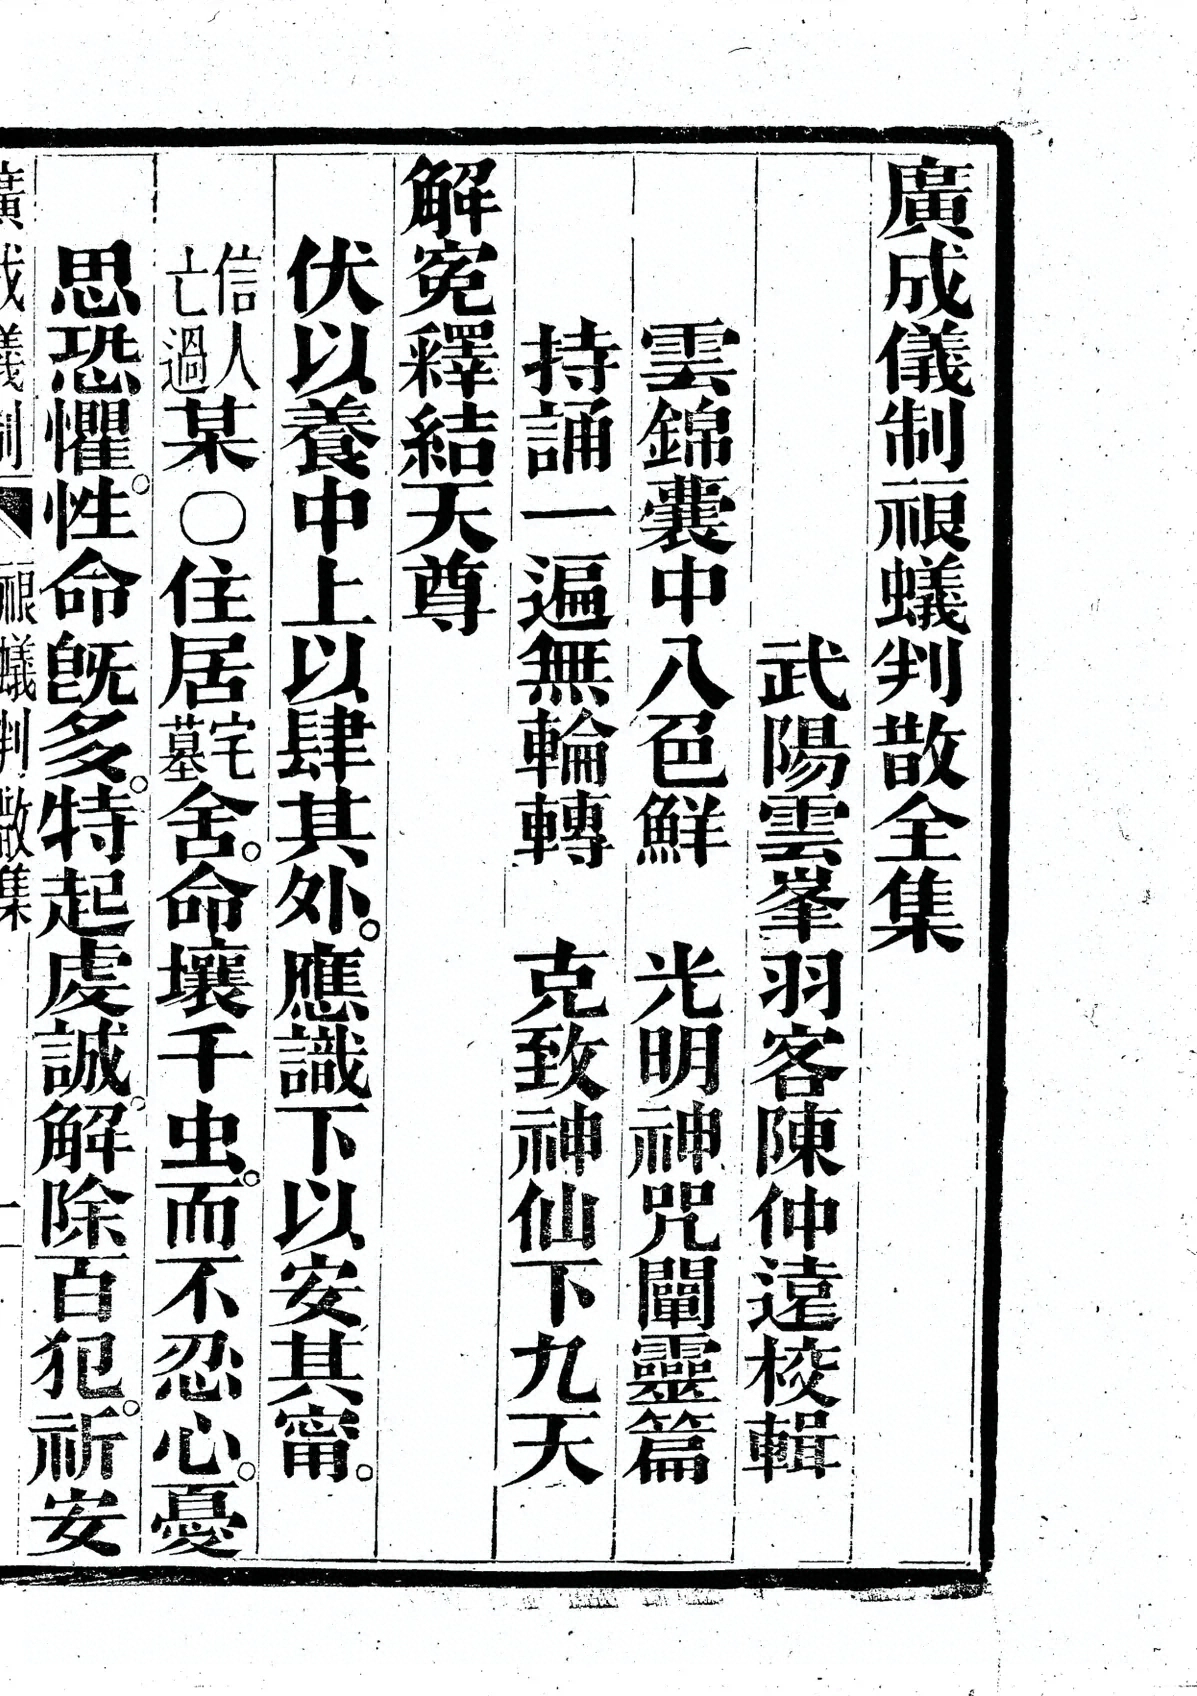 廣成儀制䘠蟻判散全集
武陽雲峯羽客陳仲遠校輯
雲錦囊中八邑鮮　光明神咒闡靈篇
持誦一遍無輪轉　克致神仙下九天
解寃釋結天尊
伏以養中上以肆其外。應識下以安其甯。
信人亡過某〇住居宅墓舍。命壞千虫。而不忍心。憂
思恐懼。性命旣多。特起虔誠。解除百犯。祈安
廣成儀制　䘠蟻判散集　一